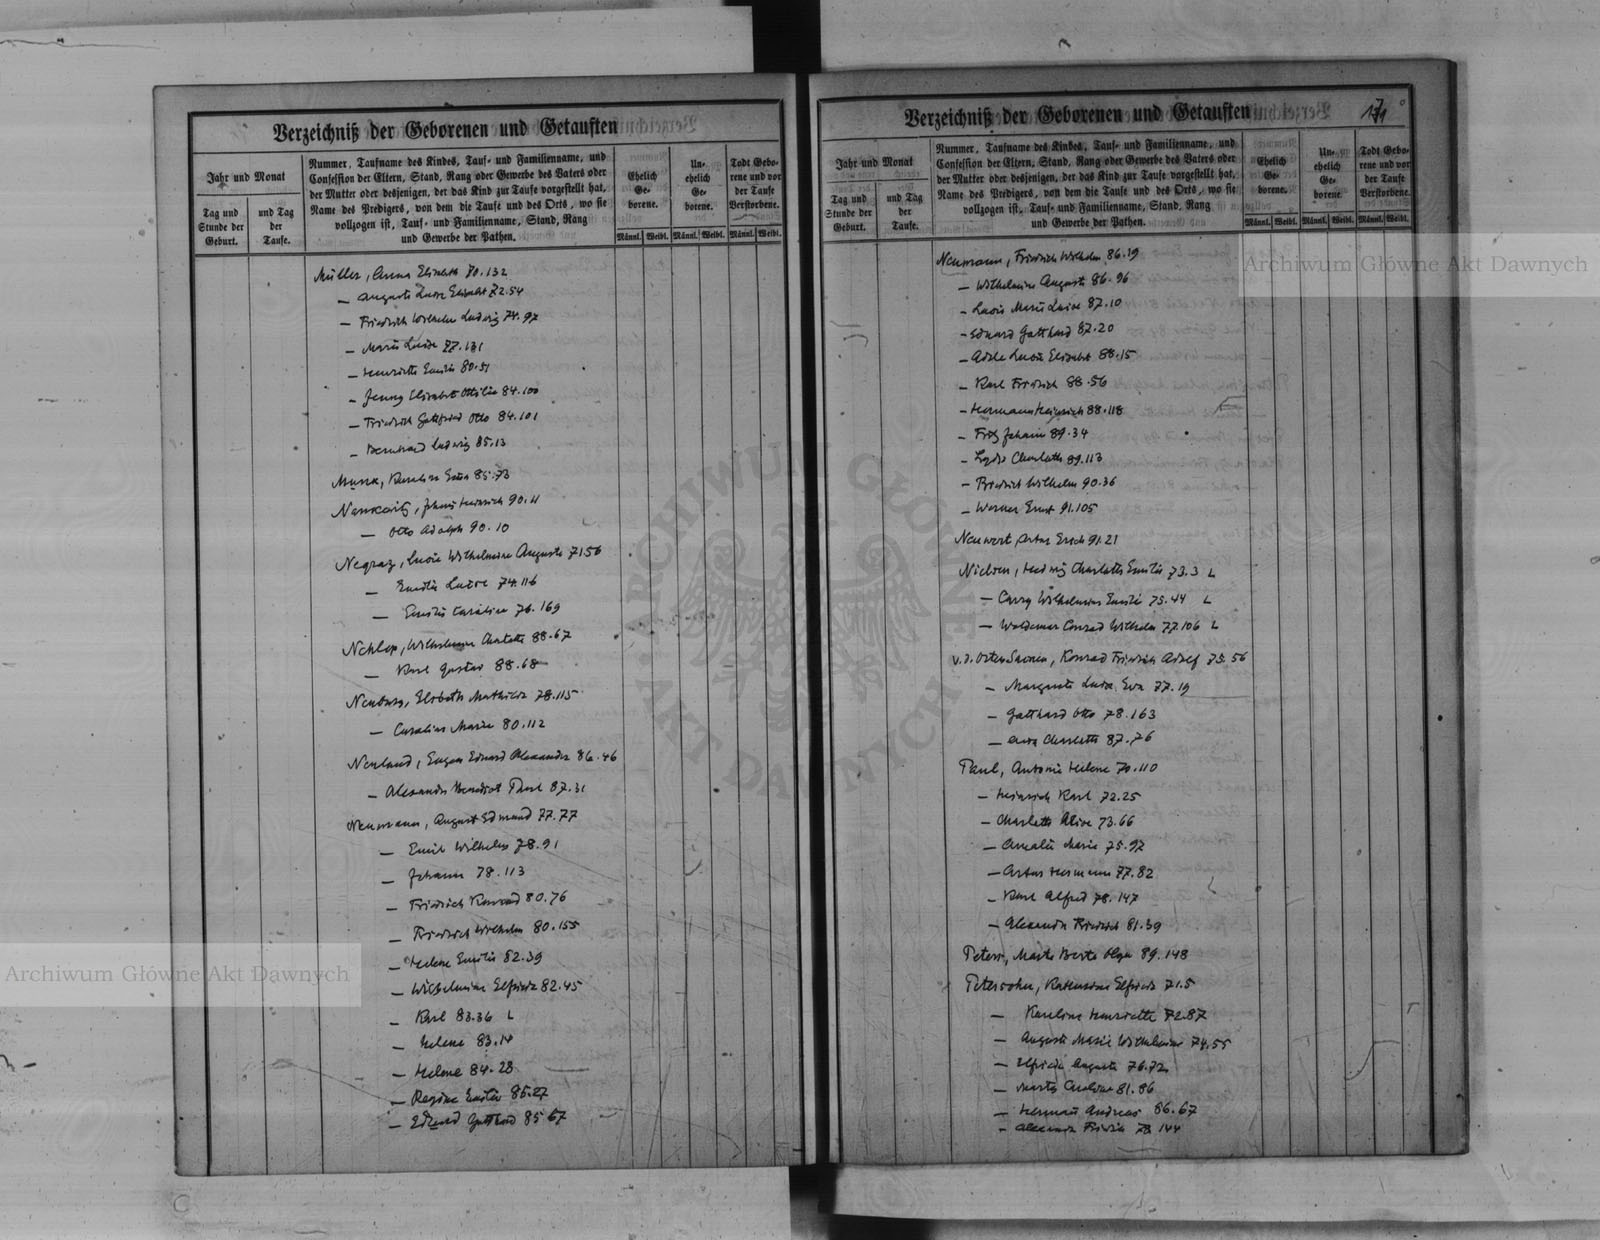 Verzeichniß der Geborenen und Getauften
Jahr und Monat
Tag und
Stunde der
Geburt.
und Tag
der
Taufe.
Nummer, Taufname des Kindes, Tauf- und Familienname, und
Confession der Eltern, Stand, Rang oder Gewerbe des Vaters oder
der Mutter oder desjenigen, der das Kind zur Taufe vorgestellt hat,
Name des Predigers, von dem die Taufe und des Orts, wo sie
vollzogen ist, Tauf- und Familienname, Stand, Rang
und Gewerbe der Pathen.
Ehelich
Ge-
borene.
Un-
ehelich
Ge-
borene.
Todt Gebo-
rene und vor
der Taufe
Verstorbene.
Männl. Weibl. Männl. Weibl. Männl. Weibl.
Müller, Anna Elisabeth 70.132
— Auguste Luise Elisabet 72.54
— Friedrich Wilhelm Ludwig 74.97
— Marie Luise 77.131
— Henriette Emilie 80.51
— Jenny Elisabet Ottilie 84.100
— Friedrich Gottfried Otto 84.101
— Bernhard Ludwig 85.13
85.73
Heinrich 90.11
— Otto Adolph 90.10
Wilhelmine Auguste 71.56
— Emilie Luise 74.116
— Emilie Caroline 76.169
Wilhelmine Charlotte 88.67
— Karl Gustav 88.68
Neuburg, Elsbeth Mathilde 78.115
— Caroline Marie 80.112
Neuland, Eugen Eduard Alexander 86.46
— Alexander Benedict Paul 87.31
Neumann, August Edmund 77.77
— Emil Wilhelm 78.91
— Johann 78.113
— Friedrich Konrad 80.76
— Friedrich Wilhelm 80.155
— Helene Emilie 82.39
— Wilhelmine Elfriede 82.45
— Karl 83.36 L
— Helene 83.14
— Helene 84.28
— Regine Emilie 85.27
— Eduard Gotthard 85.67
Verzeichniß der Geborenen und Getauften
Jahr und Monat
Tag und
Stunde der
Geburt.
und Tag
der
Taufe.
Nummer, Taufname des Kindes, Tauf- und Familienname, und
Confession der Eltern, Stand, Rang oder Gewerbe des Vaters oder
der Mutter oder desjenigen, der das Kind zur Taufe vorgestellt hat,
Name des Predigers, von dem die Taufe und des Orts, wo sie
vollzogen ist, Tauf- und Familienname, Stand, Rang
und Gewerbe der Pathen.
Ehelich
Ge-
borene.
Un-
ehelich
Ge-
borene.
Todt Gebo-
rene und vor
der Taufe
Verstorbene.
Männl. Weibl. Männl. Weibl. Männl. Weibl.
Neumann, Friedrich Wilhelm 86.19
— Wilhelmine Auguste 86.96
— Lucie Marie Luise 87.10
— Eduard Gotthard 87.20
— Adele Lucie Elisabet 88.15
— Karl Friedrich 88.56
— Hermann Heinrich 88.118
— Fritz Johann 89.34
— Lydia Charlotte 89.113
— Friedrich Wilhelm 90.36
— Werner Ernst 91.105
Neuwert, Artur Erich 91.21
Nielsen, Hedwig Charlotte Emilie 73.3 L
— Wilhelmine Emilie 75.44 L
— Woldemar Conrad Wilhelm 77.106 L
v. d. Osten Sacken, Konrad Friedrich Adolf 75.56
— Margarete Luise Eva 77.19
— Gotthard Otto 78.163
— Charlotte 87.76
Paul, Antonie Helene 70.110
— Heinrich Karl 72.25
— Charlotte Alice 73.66
— Amalie Marie 75.97
— Artur Hermann 77.82
— Karl Alfred 78.147
— Alexander Friedrich 81.39
Peters, Marta Berta Olga 89.148
Petersohn, Katharina Elfriede 71.5
— Karoline Henriette 72.87
— Auguste Marie Wilhelmine 74.55
— Elfriede Auguste 76.72
— Marta Caroline 81.86
— Herman Andreas 86.67
— Alexander Friedrich 78.144
Archiwum Główne Akt Dawnych
Archiwum Główne Akt Dawnych
ARCHIWUM GŁÓWNE AKT DAWNYCH